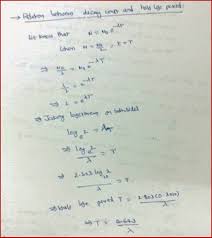 → Relation between decay const and half life period:
We know that N = N₀ e^-λT
when N = N₀/2, t = T
⇒ N₀/2 = N₀ e^-λT
⇒ 1/2 = e^-λT
⇒ 2 = e^λT
⇒ Taking logarithms on both sides
log_e 2 = λT
⇒ log_e 2 / λ = T
⇒ 2.303 log 2 / λ = T
⇒ Half life period T = 2.303 (0.3010) / λ
⇒ T = 0.693 / λ